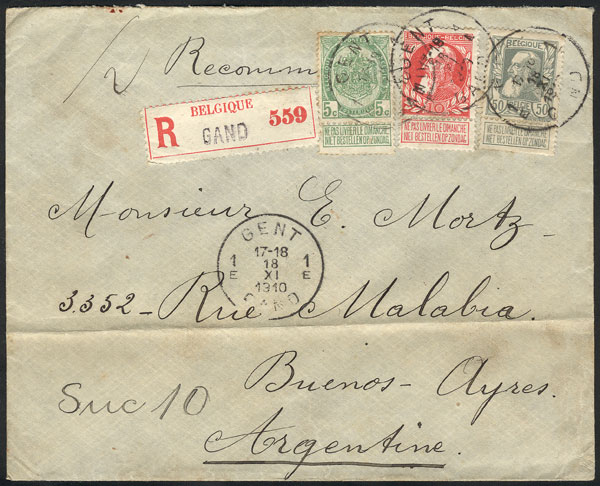 Recomm
R BELGIQUE 559
GAND
5c 5c
NE PAS LIVRER LE DIMANCHE
NIET BESTELLEN OP ZONDAG
10
NE PAS LIVRER LE DIMANCHE
NIET BESTELLEN OP ZONDAG
BELGIQUE
50 50
NE PAS LIVRER LE DIMANCHE
NIET BESTELLEN OP ZONDAG
GENT
GENT
Monsieur E. Mortz-
GENT
17-18
1 18 1
E XI E
1910
GAND
3.352-Rue Malabia.
Buenos-Ayres.
Suc 10
Argentine.